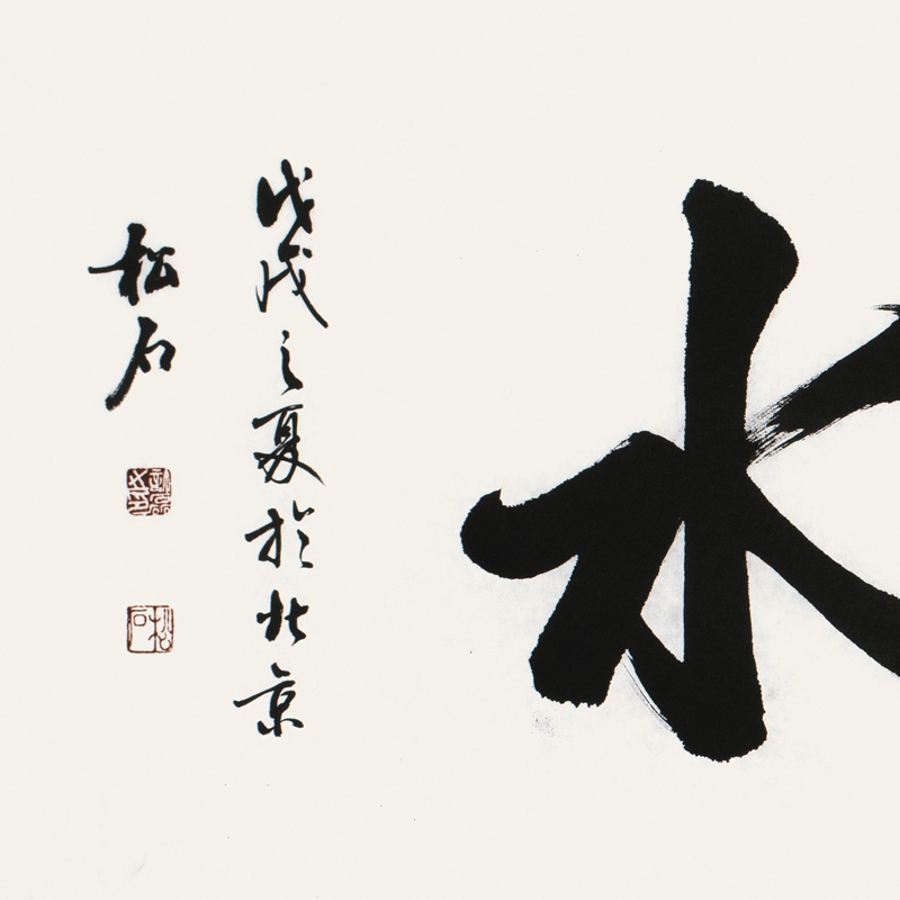 水
戊戌之夏於北京
松石
松石